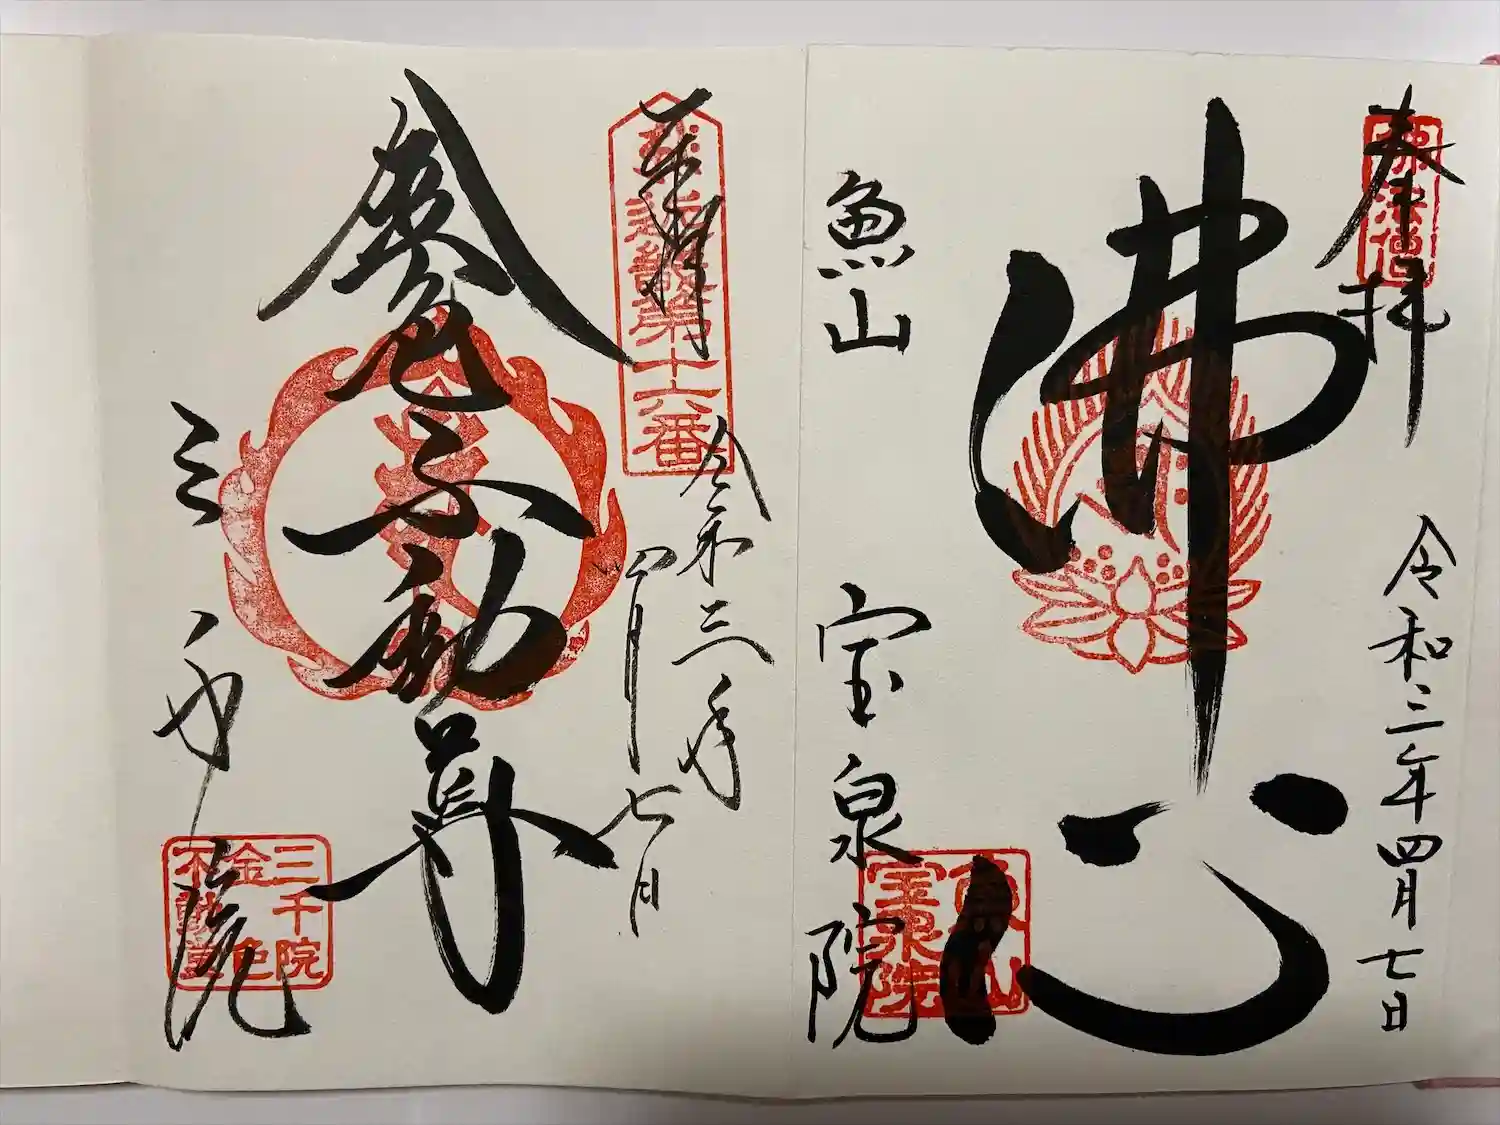 奉拝
佛法僧
令和三年四月七日
佛心
魚山
宝泉院
魚山
宝泉院
奉拝
第十六番
令和三年
四月七日
金色不動尊
三千院
三千院
金色
不動堂